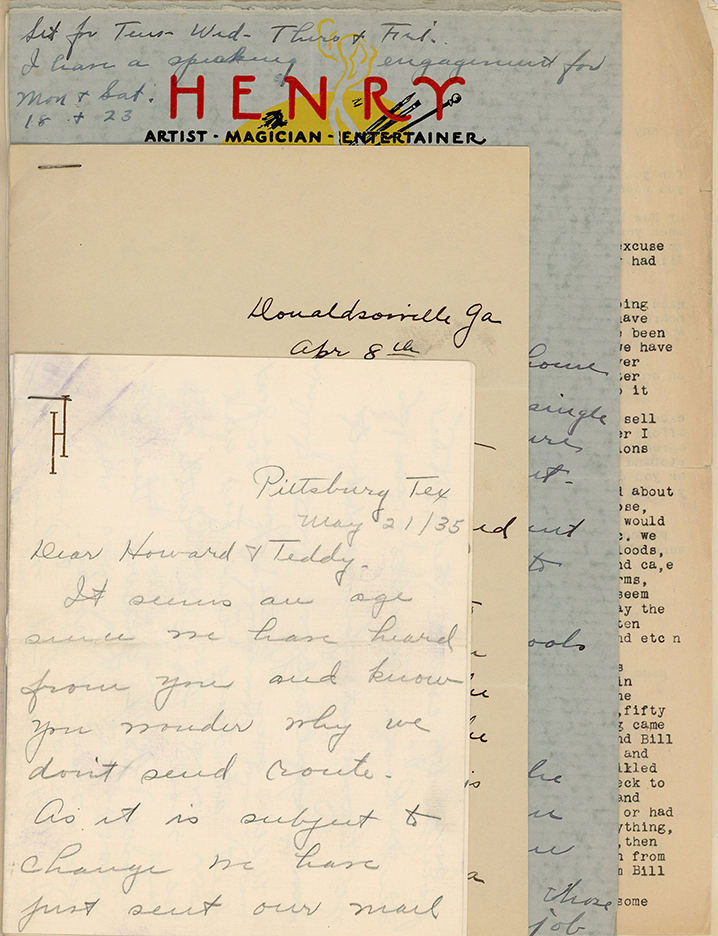 Set for Tues- Wed- Thurs & Fri.
I have a speaking engagement for
Mon & Sat.
18 & 23
HENRY
ARTIST - MAGICIAN - ENTERTAINER
Donaldsonville Ga
Apr 8th
H
Pittsburg Tex
May 21/35
Dear Howard & Teddy-
It seems an age
since we have heard
from you and know
you wonder why we
don't send route.
As it is subject to
change we have
just sent our mail
home
single
ures
ut-
ed
ent
to
ools
he
is
a
those
job
excuse
had
ing
ave
been
we have
ver
ter
it
sell
er I
ions
about
ose,
would
c. we
loods,
nd ca,e
rms,
seem
ay the
ten
nd etc n
s
in
he
,fifty
g came
nd Bill
and
lled
eck to
and
or had
ything,
,then
n from
m Bill
some